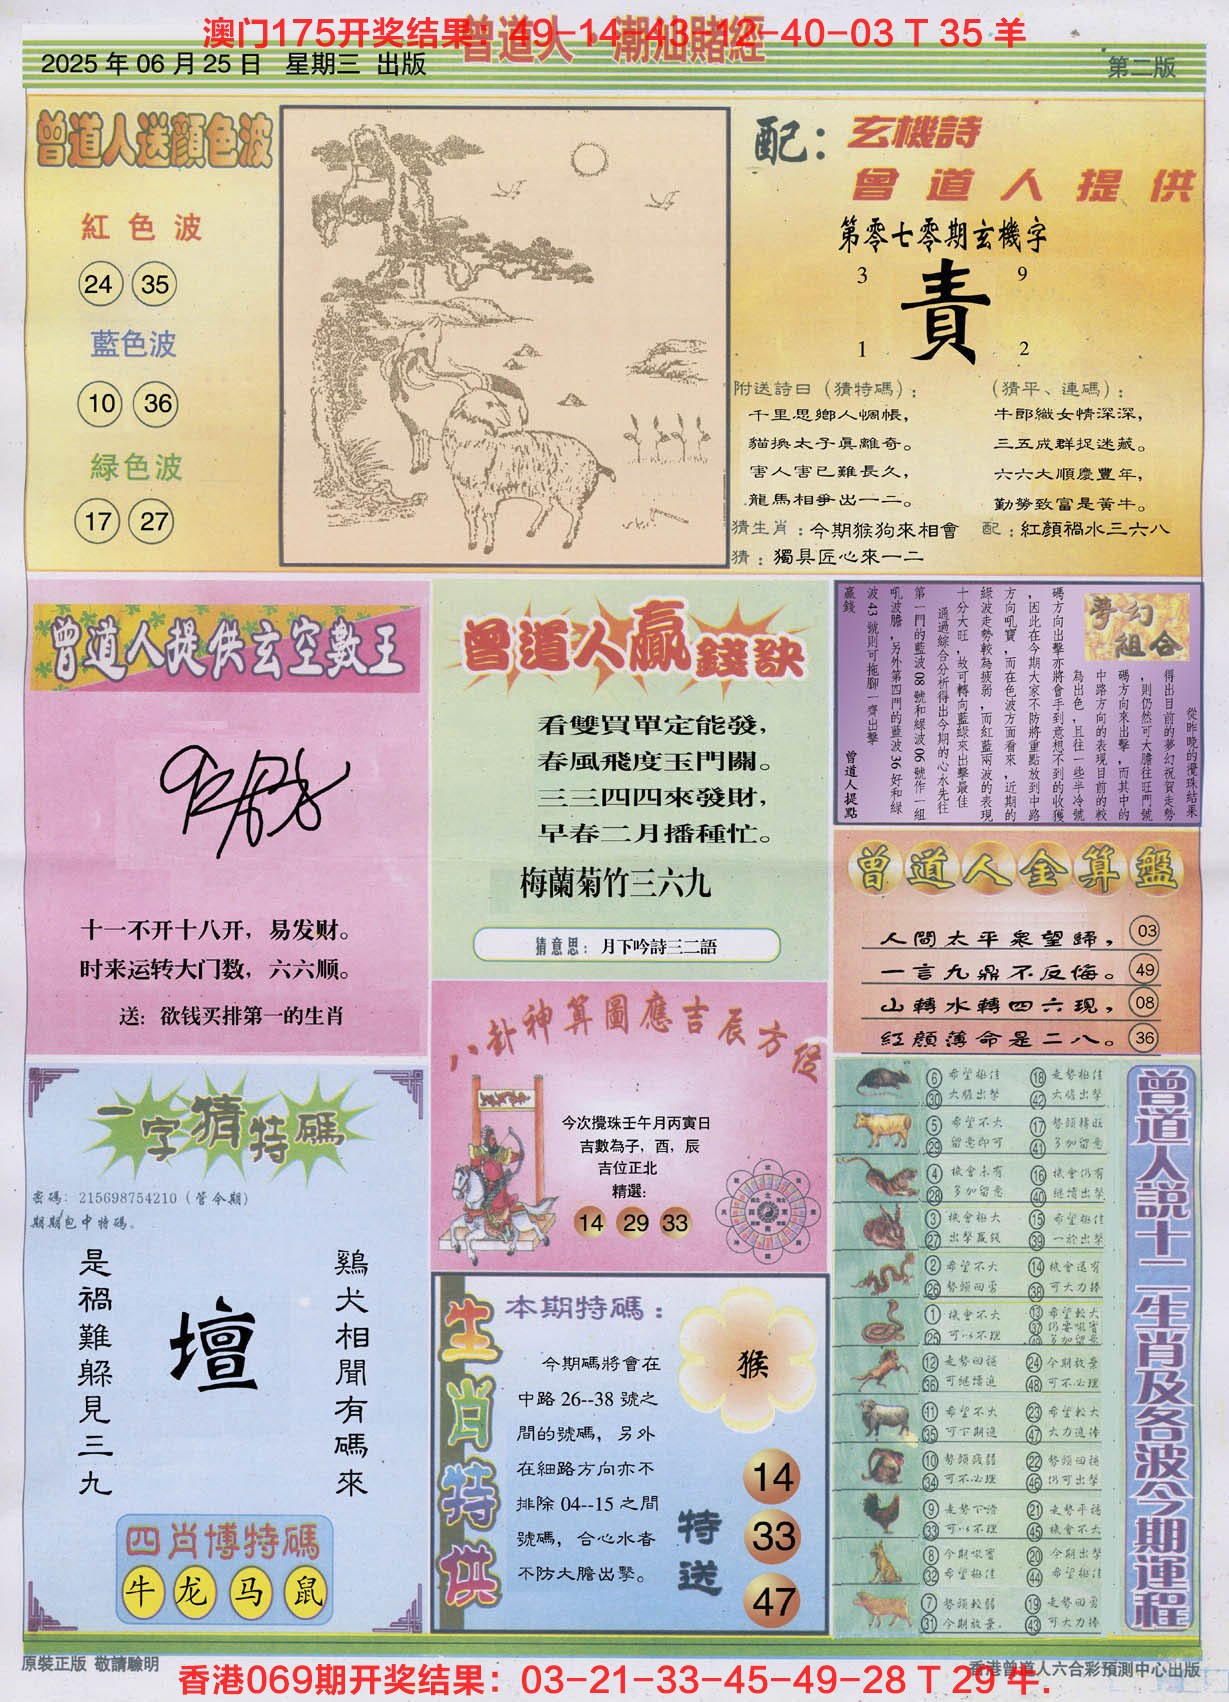 澳门175开奖结果：49-14-43-12-40-03 T 35 羊
曾道人·潮汕賭經
2025 年 06 月 25 日 星期三 出版
第二版
曾道人送顏色波
紅色波
24 35
藍色波
10 36
綠色波
17 27
配：玄機詩
曾道人提供
第零七零期玄機字
3 9
責
1 2
附送詩曰（猜特碼）：
千里思鄉人惆悵，
貓換太子真離奇。
害人害己難長久，
龍馬相爭出一二。
（猜平、連碼）：
牛郎織女情深深，
三五成群捉迷藏。
六六大順慶豐年，
勤勞致富是黃牛。
猜生肖：今期猴狗來相會
配：紅顏禍水三六八
猜：獨具匠心來一二
曾道人提供玄空數王
十一不开十八开，易发财。
时来运转大门数，六六顺。
送：欲钱买排第一的生肖
曾道人贏錢訣
看雙買單定能發，
春風飛度玉門關。
三三四四來發財，
早春二月播種忙。
梅蘭菊竹三六九
猜意思：月下吟詩三二語
夢幻組合
從昨晚的攪珠結果
得出目前的夢幻祝賀走勢
，則仍然可大膽往旺門號
碼方向來出擊，而其中的
中路方向的表現目前的較
為出色，且往一些半冷號
碼方向出擊亦將會手到意想不到的收獲
，因此在今期大家不防將重點放到中路
方向吼寶，而在色波方面看來，近期的
綠波走勢較為疲弱，而紅藍兩波的表現
十分大旺，故可轉向藍綠來出擊最佳
通過綜合分析得出今期的心水先往
第一門的藍波 08 號和綠波 06 號作一組
吼波膽，另外第四門的藍波 36 好和綠
波 43 號則可拖腳一齊出擊
贏錢
曾道人提點
曾道人金算盤
人間太平眾望歸， 03
一言九鼎不反悔。 49
山轉水轉四六現， 08
紅顏薄命是二八。 36
八卦神算圖應吉辰方位
今次攪珠壬午月丙寅日
吉數為子，酉，辰
吉位正北
精選:
14 29 33
一字猜特碼
密碼：215698754210（管令期）
期期包中特碼。
鷄犬相聞有碼來
壇
是禍難躲見三九
四肖博特碼
牛 龙 马 鼠
生肖特供
本期特碼：
猴
今期碼將會在
中路 26--38 號之
間的號碼，另外
在細路方向亦不
排除 04--15 之間
號碼，合心水者
不防大膽出擊。
特送
14
33
47
曾道人說十二生肖及各波今期運程
6 希望極佳 18 走勢極佳
30 大膽出擊 42 大膽出擊
5 希望不大 17 勢頭轉旺
29 留意即可 41 多加留意
4 機會未有 16 機會仍有
28 多加留意 40 繼續出擊
3 機會極大 15 希望極佳
27 出擊贏錢 39 一於出擊
2 希望不大 14 機會還有
26 勢頭回勇 38 可大力捧
1 機會不大 13 希望較大
25 可以不理 37 仍要吼實
49 多加留意
12 走勢回穩 24 今期放棄
36 可繼續追 48 可不必理
11 希望不大 23 希望較大
35 可下期追 47 大力追捧
10 勢頭疲弱 22 勢頭回穩
34 可不必理 46 仍可出擊
9 走勢下滑 21 走勢平穩
33 可以不理 45 機會不大
8 今期吼實 20 今期出擊
32 希望極佳 44 希望極佳
7 勢頭較弱 19 走勢回勇
31 今期放棄。 43 可大力捧
原裝正版 敬請驗明
香港曾道人六合彩預測中心出版
香港069期开奖结果：03-21-33-45-49-28 T 29 牛.